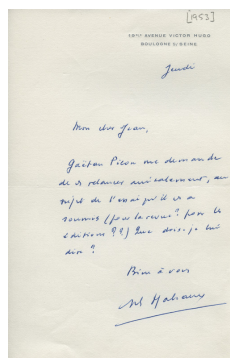 [1953]
19bis AVENUE VICTOR HUGO
BOULOGNE S/SEINE
Jeudi
Mon cher Jean,
Gaëtan Picon me demande
de vs relancer amicalement, au
sujet de l'essai qu'il vs a
soumis (pour la revue? pour les
éditions??) Que dois-je lui
dire?
Bien à vous